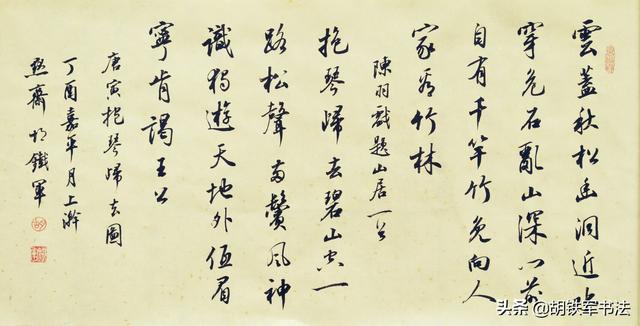 雲蓋秋松幽洞近水
穿危石亂山深門前
自有千竿竹免向人
家看竹林
陳羽戲題山居一首
抱琴歸去碧山空一
路松聲兩鬢風神
識獨遊天地外低眉
寧肯謁王公
唐寅抱琴歸去圖
丁酉嘉平月上澣
齋胡鐵軍
头条 @胡铁军书法